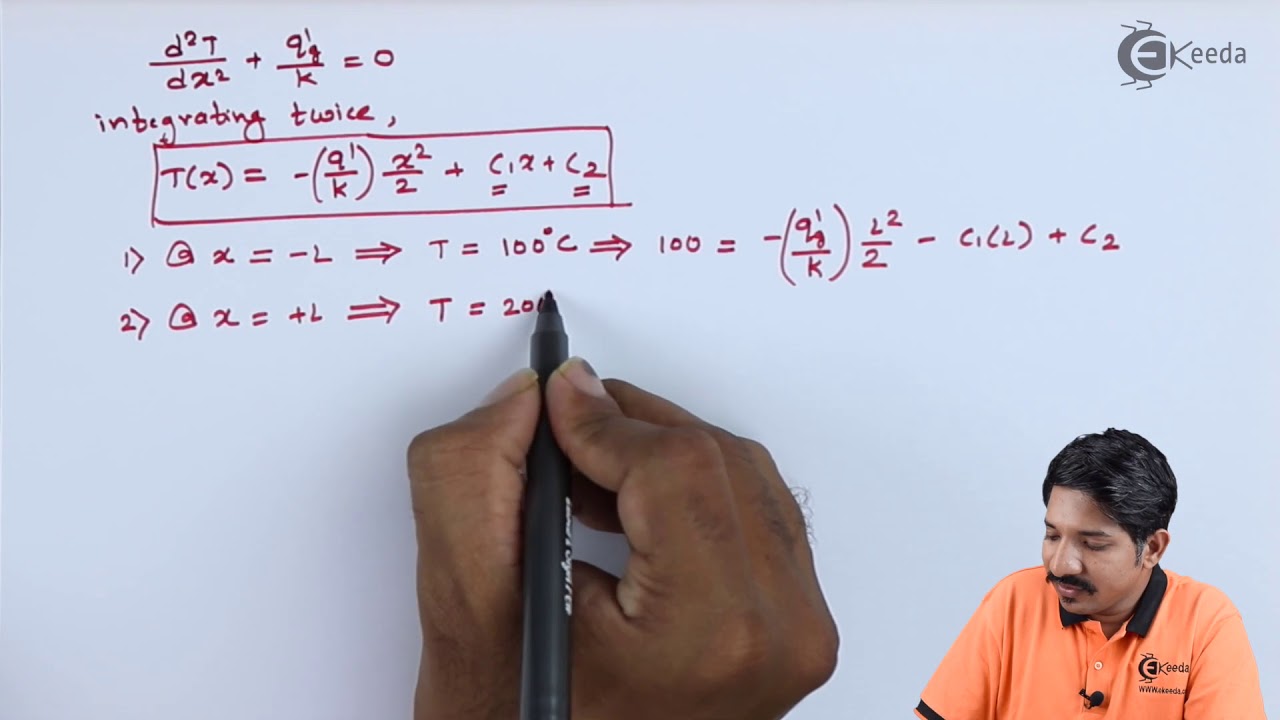 EKeeda
d²T/dx² + q'g/k = 0
integrating twice,
T(x) = -(q'/k) x²/2 + C₁x + C₂
1) @ x = -L ⟹ T = 100°C ⟹ 100 = -(q'g/k) L²/2 - C₁(L) + C₂
2) @ x = +L ⟹ T = 200
EKeeda
www.ekeeda.c